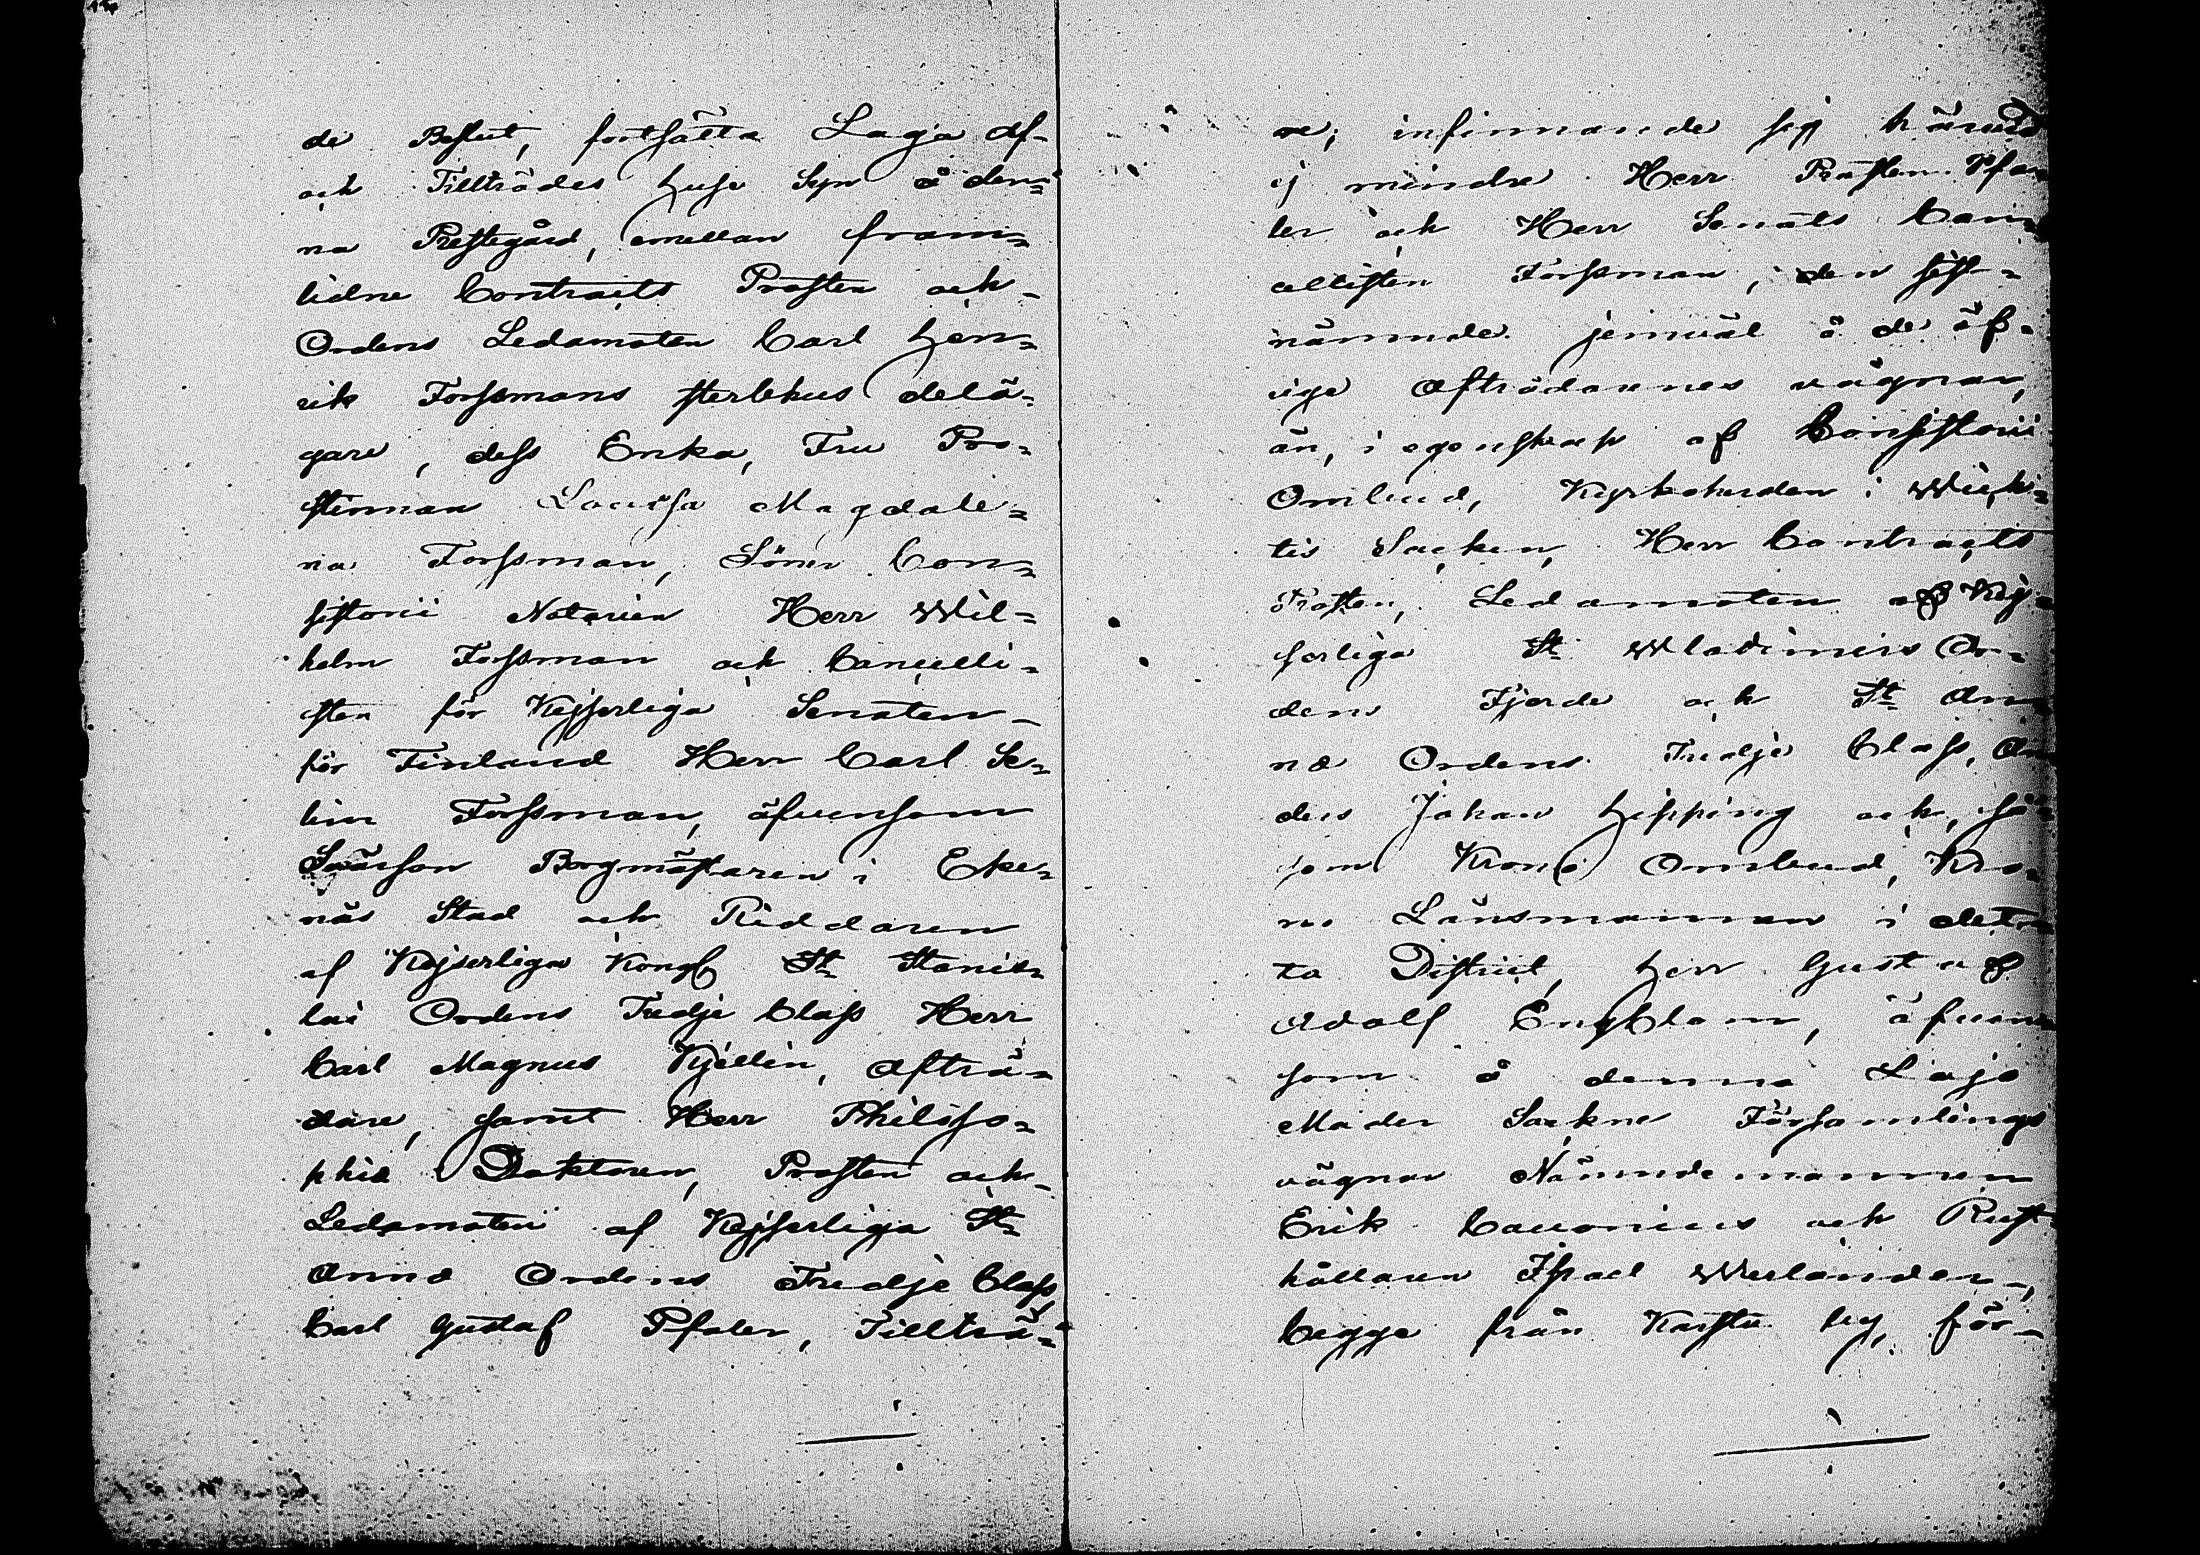 de Beslut, fortsätta Laga Af-
och Tillträdes Huse Syn å den=
na Prestegård, emellan fram=
lidne Contracts Prosten och
Ordens Ledamoten Carl Hen=
rik Forssmans sterbhus delä=
gare, dess Enka, Fru Pro=
stinnan Lovisa Magdale=
na Forssman, Söner Con=
sistorii Notarien Herr Wil=
helm Forssman och Cancelli=
sten för Kejserliga Senaten
för Finland Herr Carl Se=
lim Forssman, äfvensom
Svärson Borgmästaren i Eke=
näs Stad och Riddaren
af Kejserliga Kongl St Stanis=
lai Ordens Tredje Class Herr
Carl Magnus Kjellin, Afträ=
dare, samt Herr Philoso=
phiæ Doktoren, Prosten och
Ledamoten af Kejserliga St
Annæ Ordens Tredje Class
Carl Gustaf Pfaler, Tillträ=
re; infinnande sig härvid
ej mindre Herr Prosten Pfa=
ler och Herr Senats Can=
cellisten Forssman, den sist=
nämnde jemväl å de öf=
rige Afträdarnes vägnar,
än, i egenskap af Consistorii
Ombud, Kyrkoherden i Wich=
tis Socken, Herr Contracts
Prosten, Ledamoten af Kej=
serliga St Wladimirs Or=
dens Fjerde och St An=
næ Ordens Tredje Class, An
ders Johan Hipping och, så=
som Krono Ombud, Kro=
no Länsmannen i det=
ta District, Herr Gustaf
Adolf Engblom, äfven=
som å denna Lojo
Moder Sockne Församlings
vägnar Nämndemannen
Erik Cavonius och Rust
hållaren Israel Werlander,
begge från Karstu by, för=